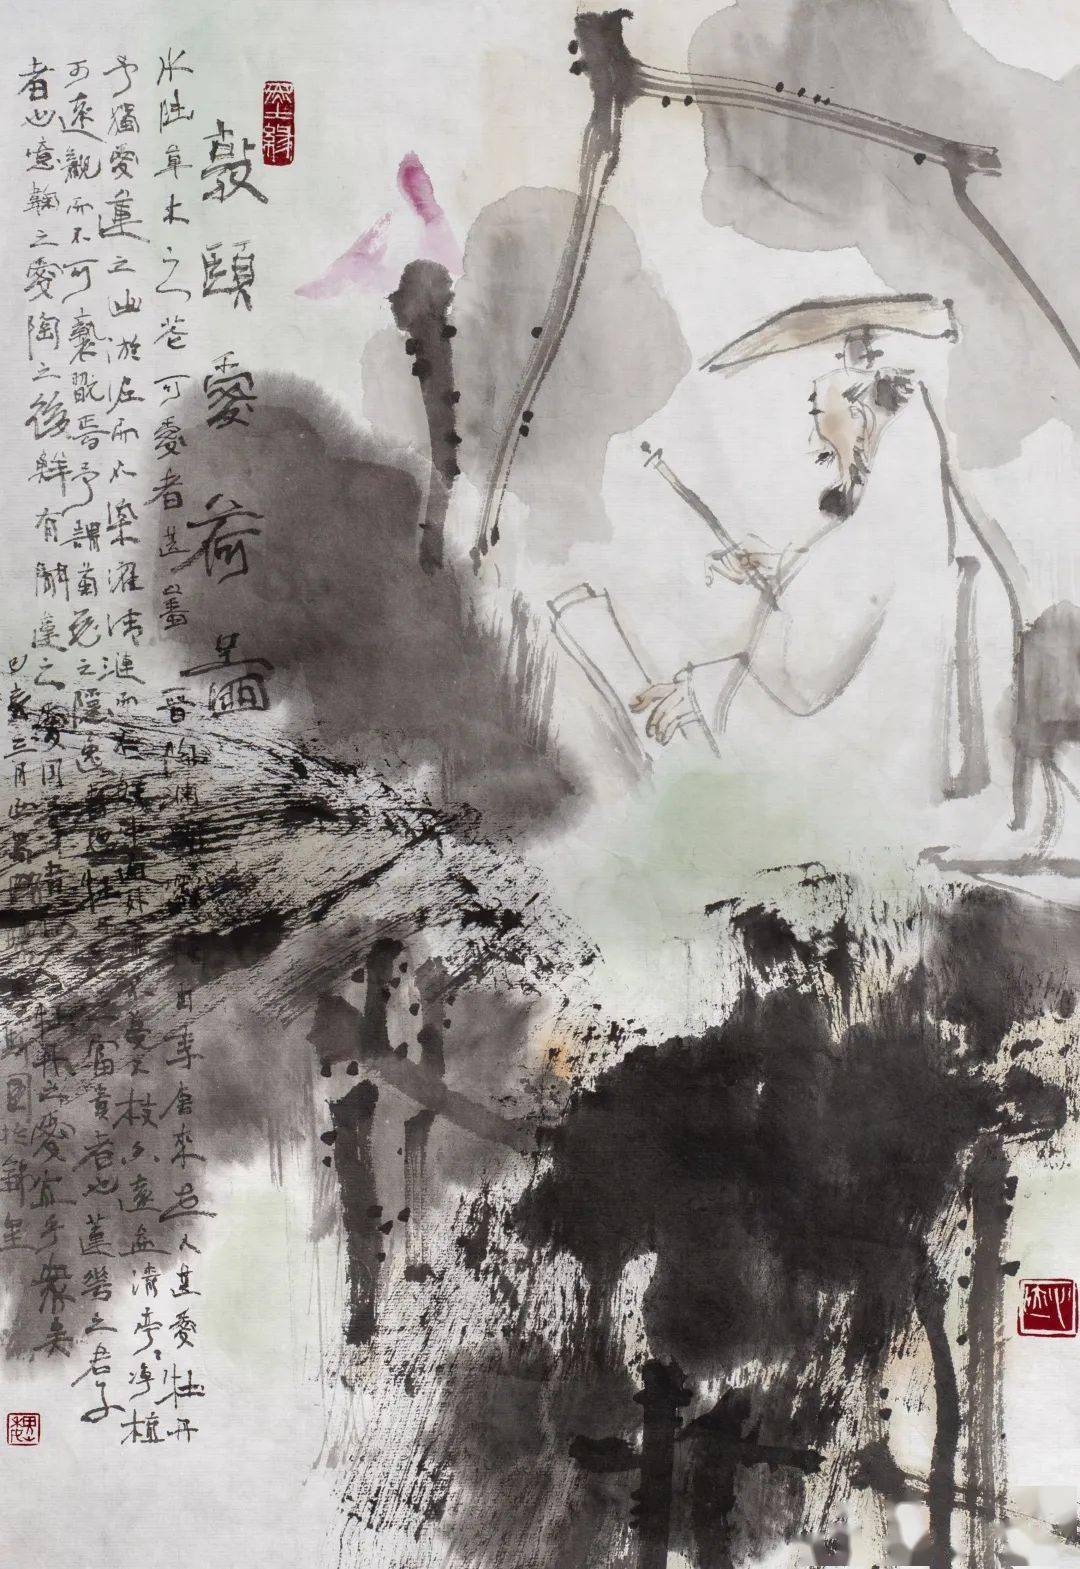 敦頤愛荷圖
水陸草木之花可愛者甚蕃晉陶淵明獨愛菊自李唐來世人甚愛牡丹
予獨愛蓮之出淤泥而不染濯清漣而不妖中通外直不蔓不枝香遠益清亭亭淨植
可遠觀而不可褻翫焉予謂菊花之隱逸者也牡丹花之富貴者也蓮花之君子
者也噫鞠之愛陶之後鮮有聞蓮之愛同予者何人牡丹之愛宜乎衆矣
己亥三月 圖於錦里